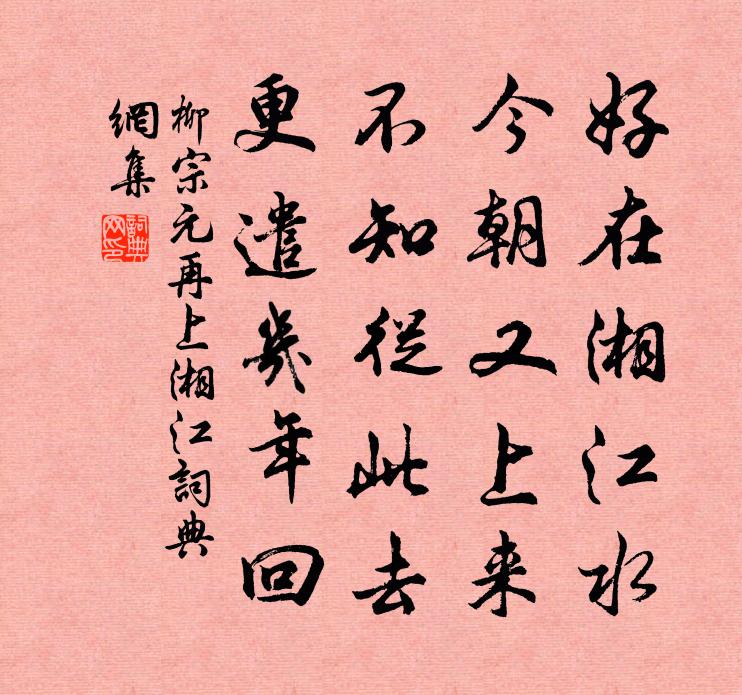 好在湘江水
今朝又上来
不知從此去
更遣幾年回
柳宗元再上湘江詞典
網集
詞典
网印